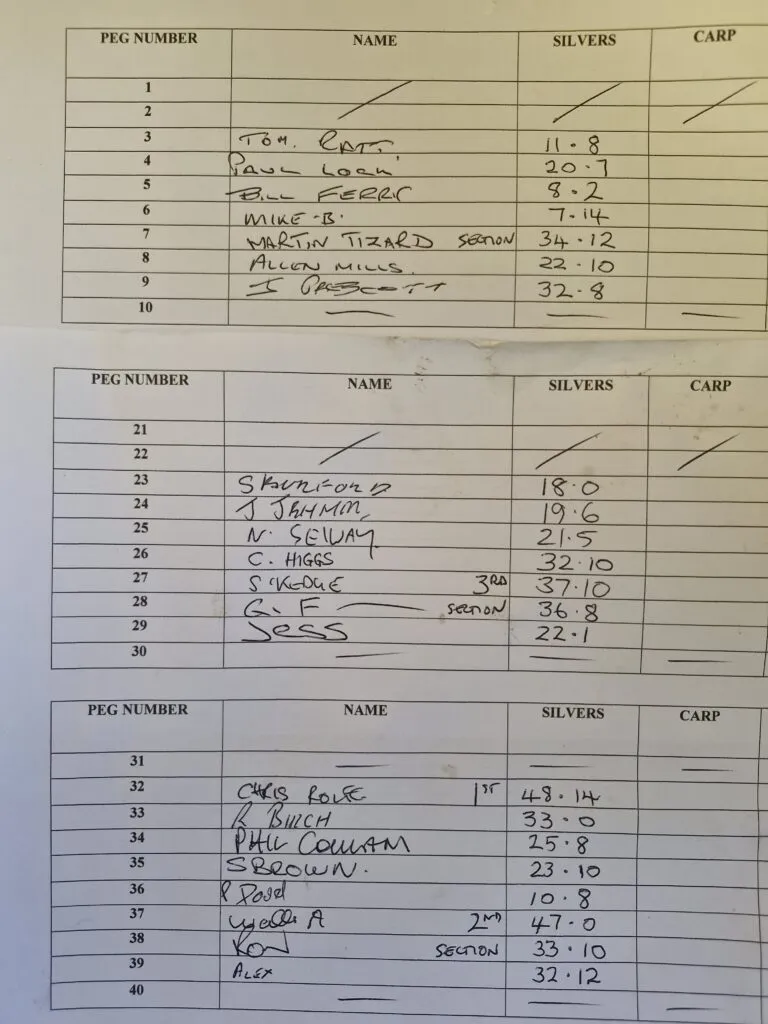 PEG NUMBER NAME SILVERS CARP
1
2
3 TOM. RATT 11.8
4 PAUL LOCK 20.7
5 BILL FERRIS 8.2
6 MIKE .B. 7.14
7 MARTIN TIZARD SECTION 34.12
8 ALLEN MILLS. 22.10
9 I PRESCOTT 32.8
10 — — —
PEG NUMBER NAME SILVERS CARP
21
22
23 S 18.0
24 J 19.6
25 N. SELWAY 21.5
26 C. HIGGS 32.10
27 S KEDGE 3RD 37.10
28 G. F — SECTION 36.8
29 JESS 22.1
30 — — —
PEG NUMBER NAME SILVERS CARP
31 — — —
32 CHRIS ROLFE 1ST 48.14
33 R BIRCH 33.0
34 PHIL 25.8
35 S BROWN. 23.10
36 P Dodd 10.8
37 A 2ND 47.0
38 RON SECTION 33.10
39 ALEX 32.12
40 — — —